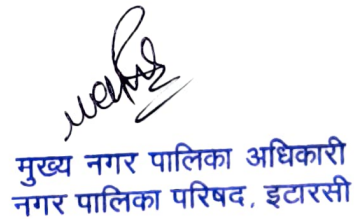 मुख्य नगर पालिका अधिकारी
नगर पालिका परिषद, इटारसी